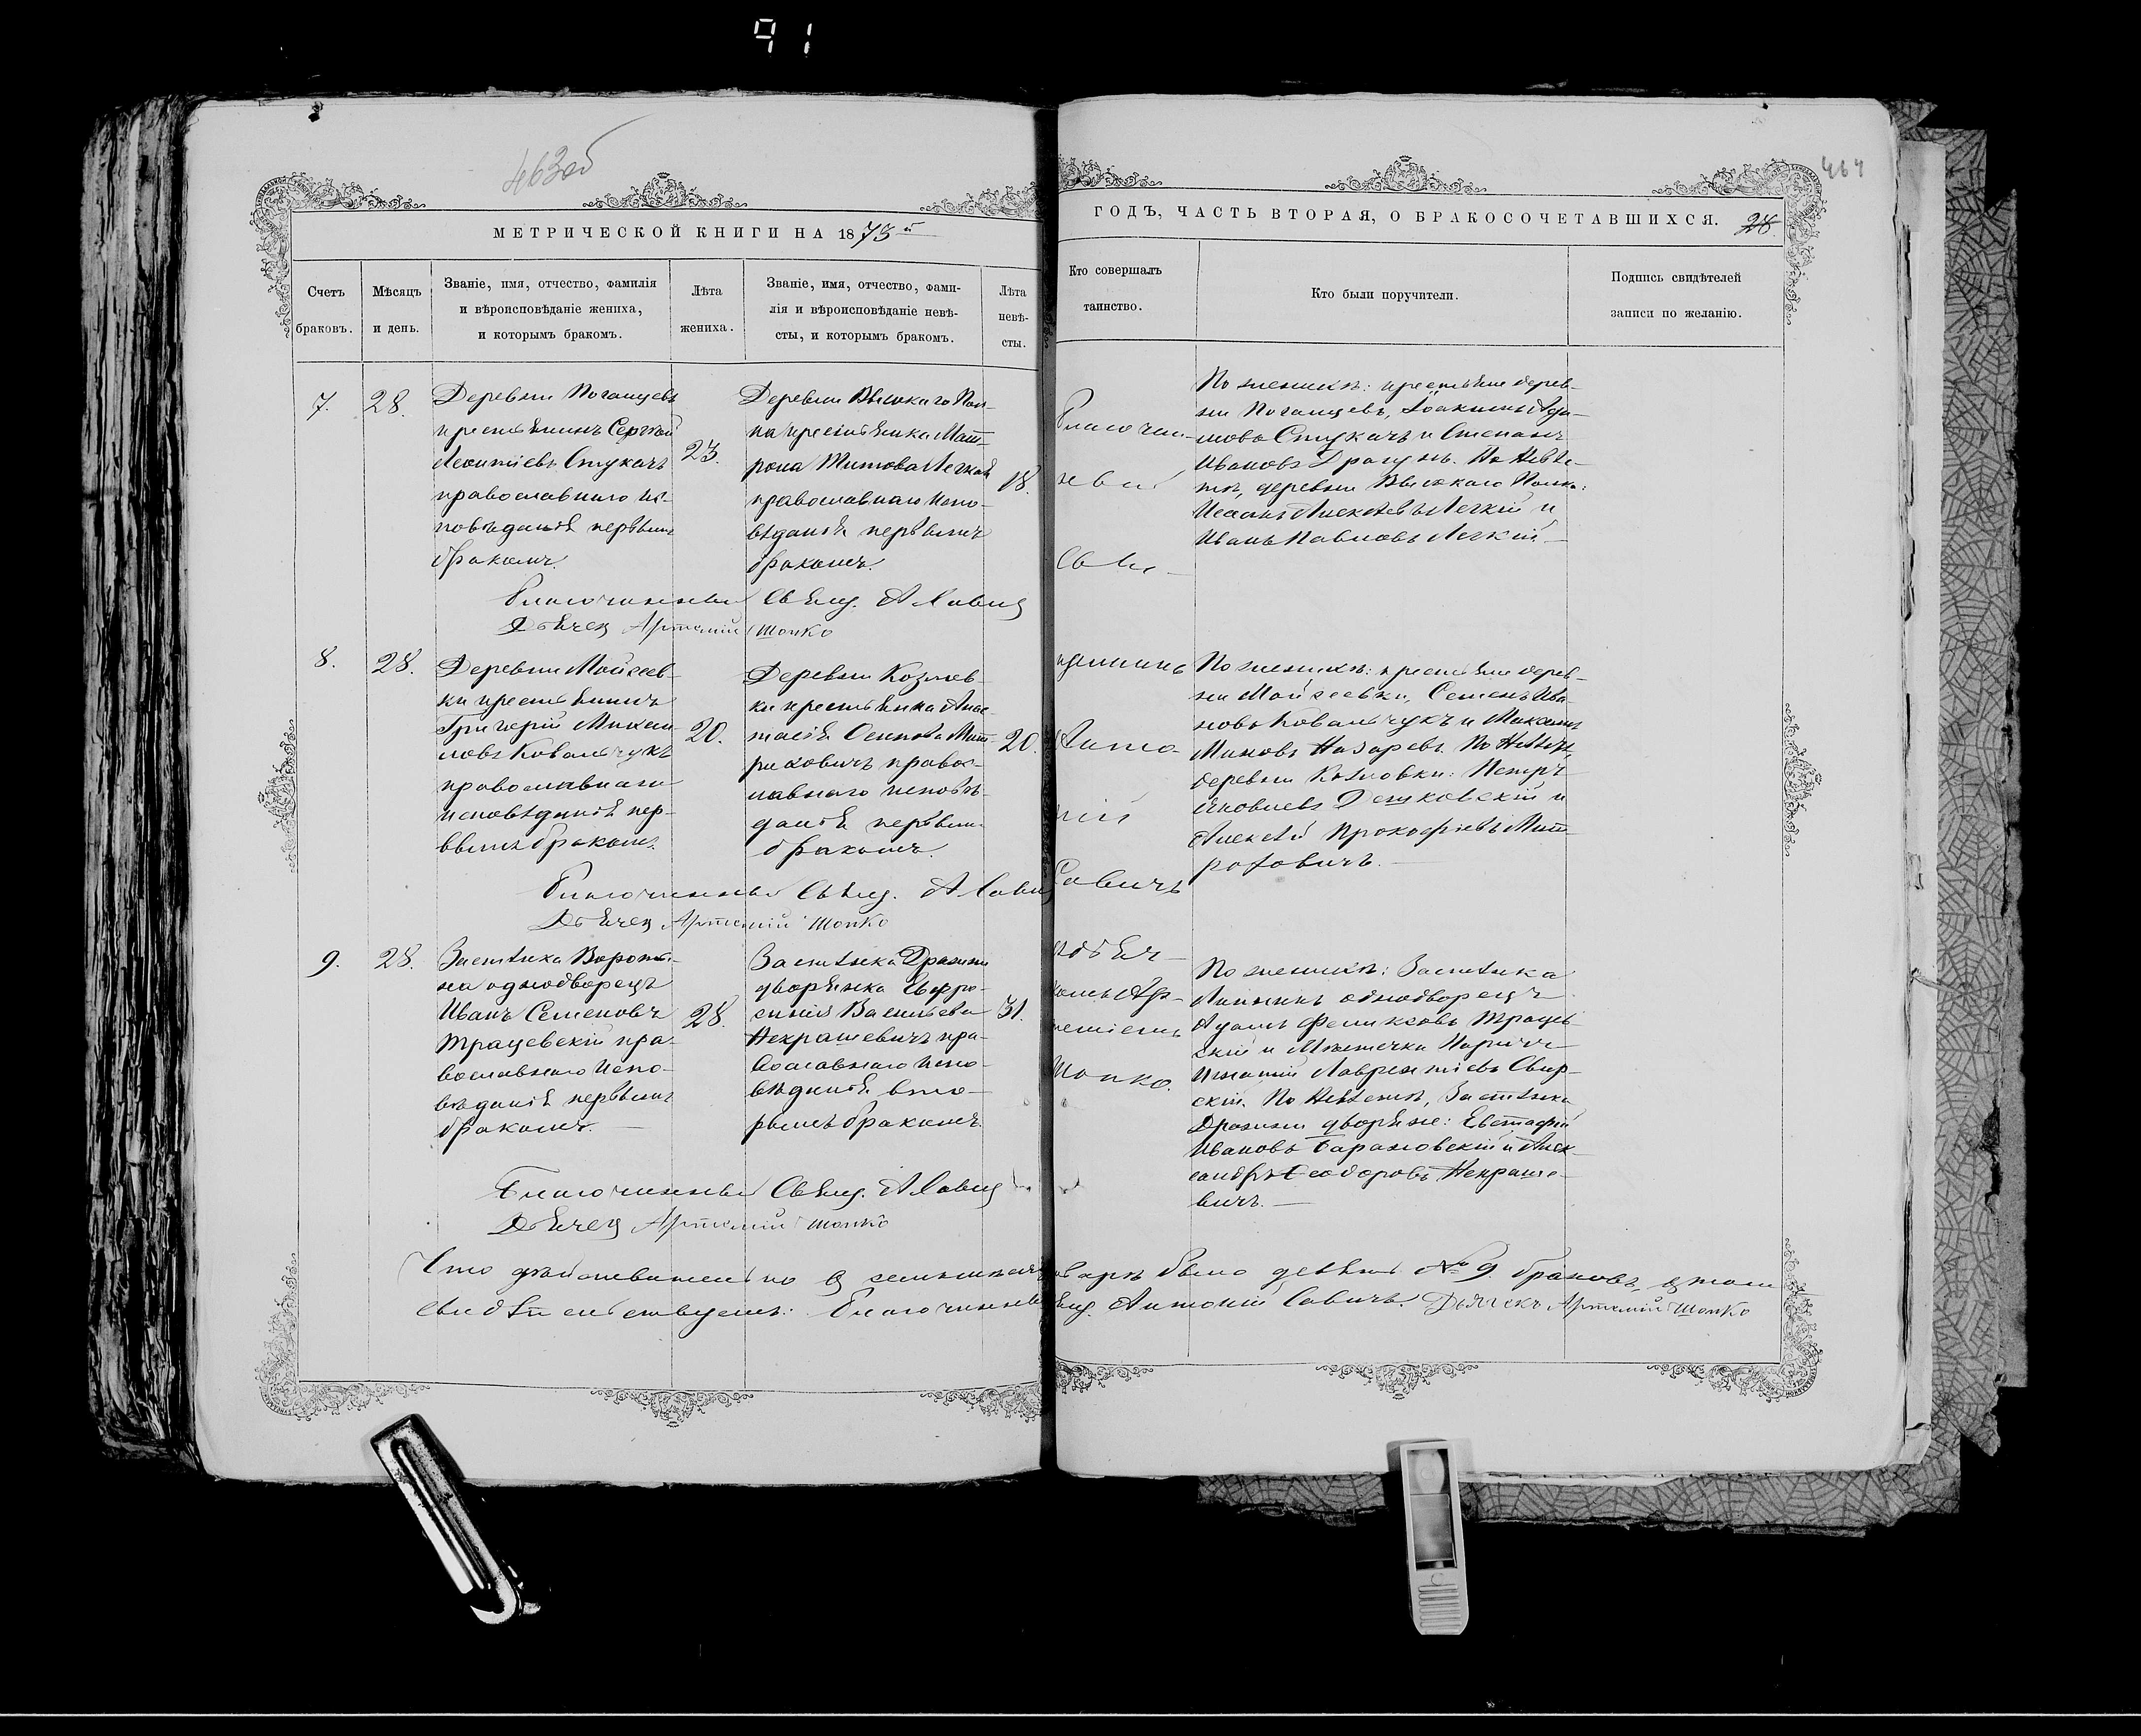 91
463об
464
МЕТРИЧЕСКОЙ КНИГИ НА 1873й
ГОДЪ, ЧАСТЬ ВТОРАЯ, О БРАКОСОЧЕТАВШИХСЯ.
Счетъ браковъ.
Мѣсяцъ и день.
Званіе, имя, отчество, фамилія
и вѣроисповѣданіе жениха,
и которымъ бракомъ.
Лѣта
жениха.
Званіе, имя, отчество, фами-
лія и вѣроисповѣданіе невѣ-
сты, и которымъ бракомъ.
Лѣта
невѣ-
сты.
Кто совершалъ
таинство.
Кто были поручители.
Подпись свидѣтелей
записи по желанію.
7.
28.
Деревни Поганцевъ
крестьянинъ Сергѣй
Леонтіевъ Стукачъ
православнаго ис-
повѣданія первымъ
бракомъ.
23.
Деревни Высокаго Пол-
ка крестьянка Мат-
рона Титова Легкая
православнаго испо-
вѣданія первымъ
бракомъ.
18.
Благочин-
ный
Свя-
По женихѣ: крестьяне дерев-
ни Поганцевъ, Іоакимъ Ада-
мовъ Стукачъ и Степанъ
Ивановъ Драгунъ. По невѣс-
тѣ, деревни Высокаго Полка:
Алексѣевъ Легкій и
Иванъ Павловъ Легкій.
Благочинный Священ. А Савич
Дьячек Артемій Шопко
8.
28.
Деревни Мойсеев-
ки крестьянинъ
Григорій Михаи-
ловъ Ковальчукъ
православнаго
исповѣданія пер-
вымъ бракомъ.
20.
Деревни Козлов-
ки крестьянка Анас-
тасія Осипова Мит-
раховичъ правос-
лавнаго исповѣ-
данія первым
бракомъ.
20.
щенникъ
Анто-
ній
Савичъ
По женихѣ: крестьяне дерев-
ни Мойсеевки, Семенъ Ива-
новъ Ковальчукъ и Максимъ
Назаревъ. По невѣстѣ,
деревни Козловки: Петръ
Яковлевъ Дешковскій и
Алексѣй Прокофіевъ Мит-
раховичъ.
Благочинный Священ. А Савич
Дьячек Артемій Шопко
9.
28.
Застѣнка Вороти-
на однодворецъ
Иванъ Семеновъ
Трацевскій пра-
вославнаго испо-
вѣданія первымъ
бракомъ.
28.
Застѣнка Дражни
дворянка Евфро-
синія Васильева
Некрашевичъ пра-
вославнаго испо-
вѣданія вто-
рымъ бракомъ.
31.
съ дьяч-
комъ Ар-
теміемъ
Шопко.
По женихѣ: Застѣнка
однодворецъ
Адамъ Феликсовъ Трацев-
скій и Мѣстечка
Игнатій Лаврентіевъ Свир-
скій. По невѣстѣ, Застѣнка
Дражни дворяне: Евстафій
Ивановъ Барановскій и Алек-
сандръ Феодоровъ Некраше-
вичъ.
Благочинный Священ. А Савич
Дьячек Артемій Шопко
Что дѣйствительно въ семъ мѣсяцѣ Январѣ было девять № 9. браковъ, въ томъ
свидѣтельствуемъ: Благочинный Священ. Антоній Савичъ. Дьячекъ Артемій Шопко